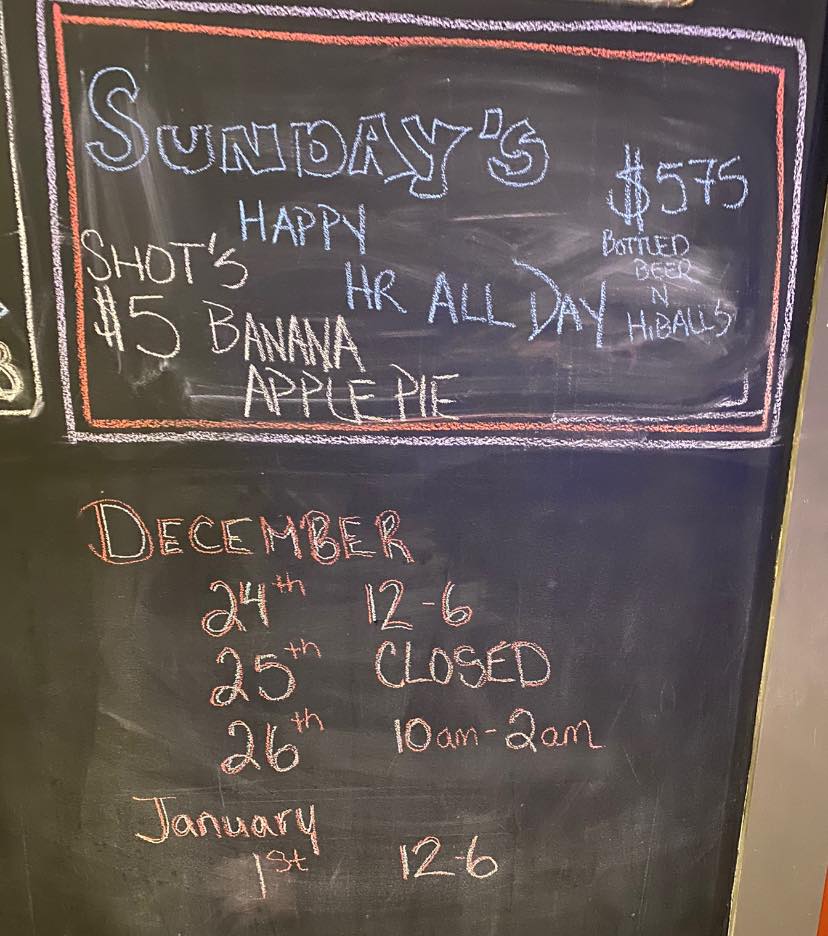 SUNDAY'S
HAPPY
HR ALL DAY
$575
BOTTLED
BEER
N
HIBALL'S
SHOT'S
$5 BANANA
APPLE PIE
DECEMBER
24th 12-6
25th CLOSED
26th 10am-2am
January
1st 12-6